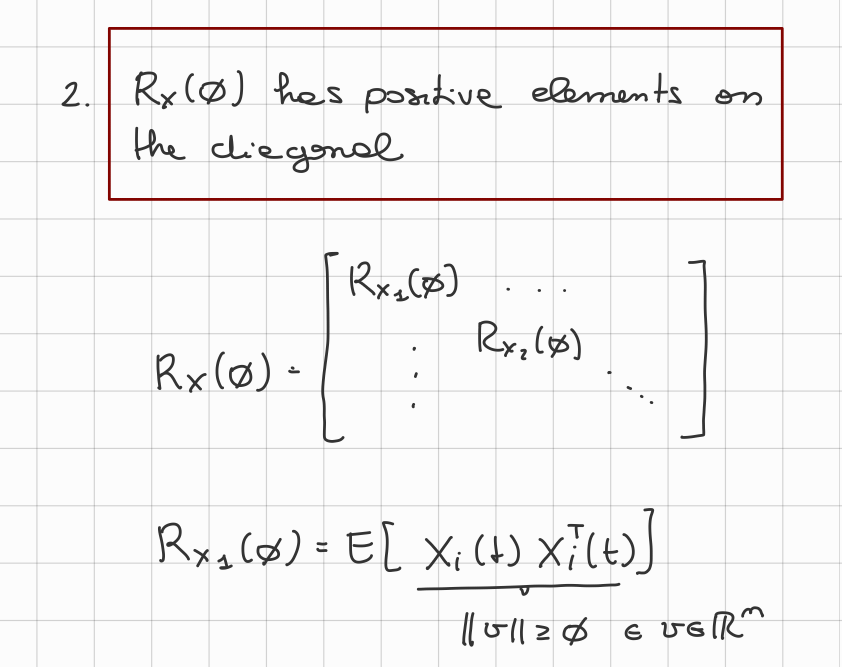 2. Rₓ(∅) has positive elements on
the diagonal
Rₓ₁(∅) . . .
Rₓ(∅) = [ ⋮ Rₓ₂(∅) ⋱ ]
Rₓ₁(∅) = E[ Xᵢ(t) Xᵢᵀ(t)]
‖v‖ ≥ ∅ ∈ v∈ℝⁿ